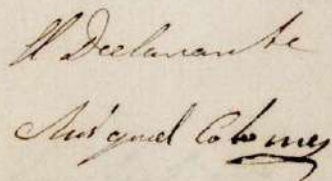 El Declarante
Miguel Colomes